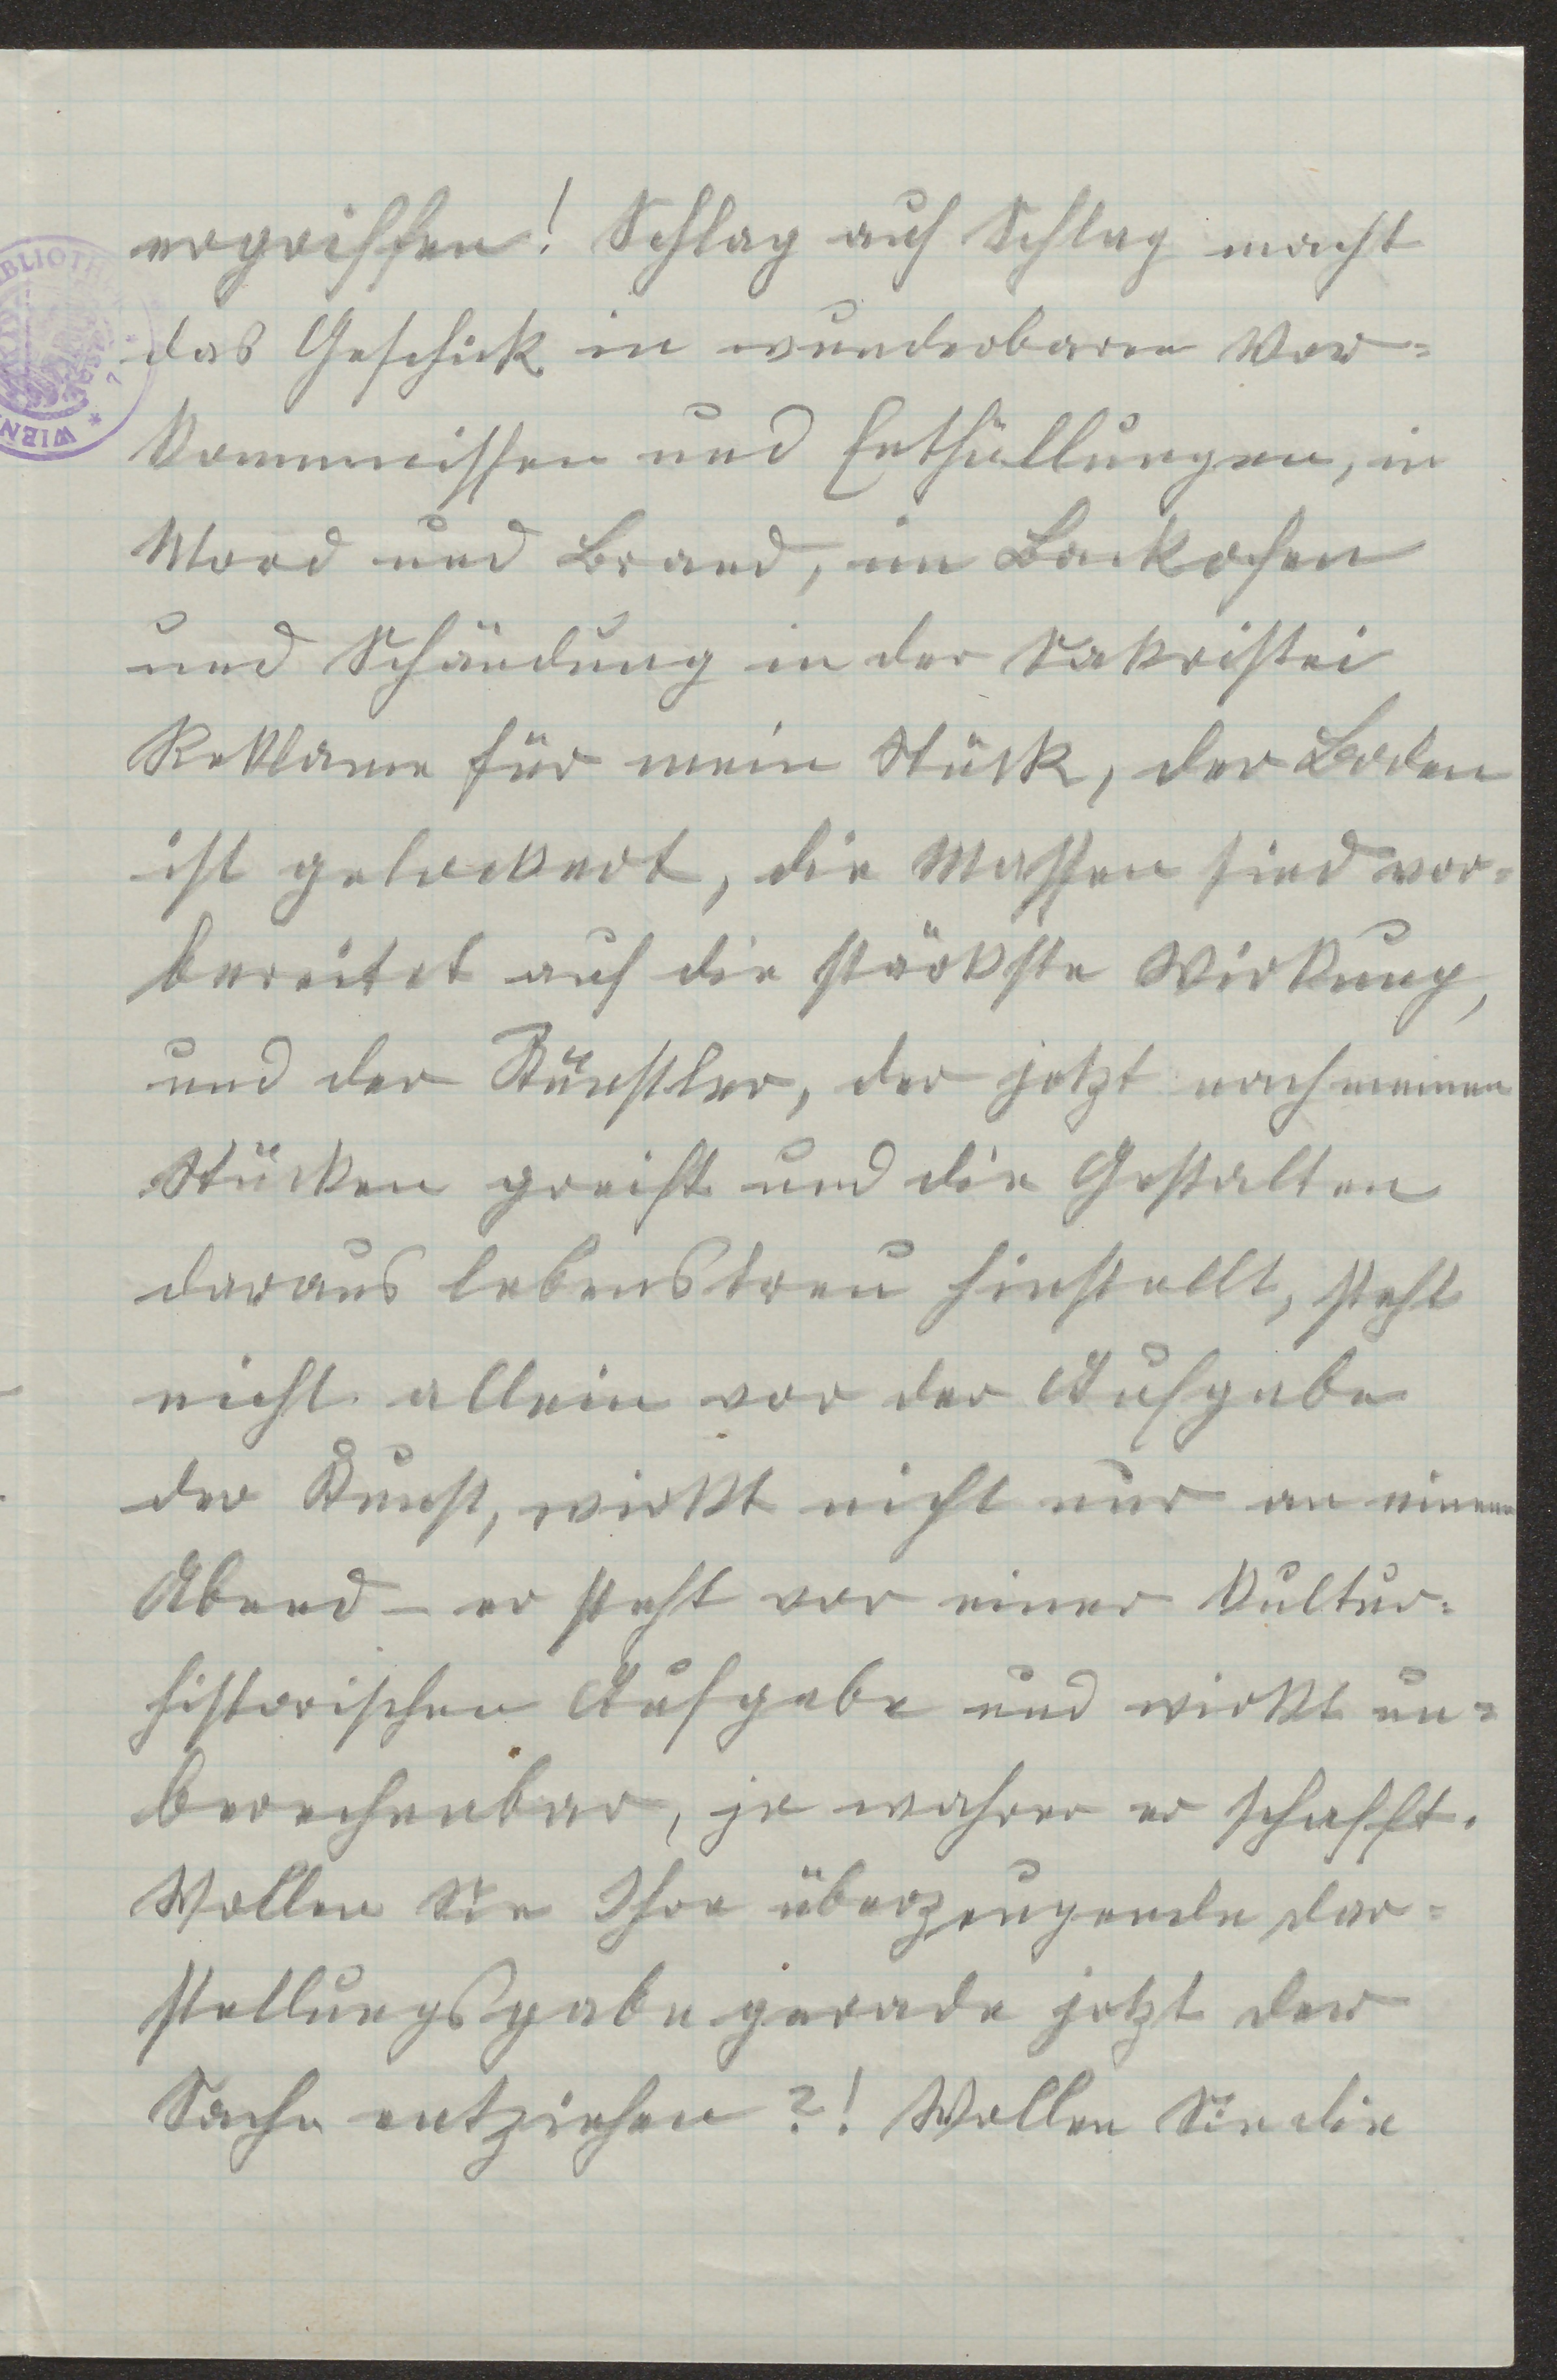 ergriffen! Schlag auf Schlag macht
das Geschick in wunderbaren Vor=
kommnissen und Enthüllungen, in
Mord und Brand, im Backofen
und Schändung in der Sakristei
Reklame für mein Stück, der Boden
ist gelockert, die Massen sind vor=
bereitet auf die stärkste Wirkung,
und der Künstler, der jetzt nach meinen
Stücken greift und die Gestalten
daraus lebenstreu hinstellt, steht
nicht allein vor der Aufgabe
der Kunst, wirkt nicht nur an einem
Abend – er steht vor einer kultur=
historischen Aufgabe und wirkt un=
berechenbar, je wahrer er schafft.
Wollen Sie Ihre überzeugende Dar=
stellungsgabe gerade jetzt der
Sache entziehen?! Wollen Sie die
WIEN